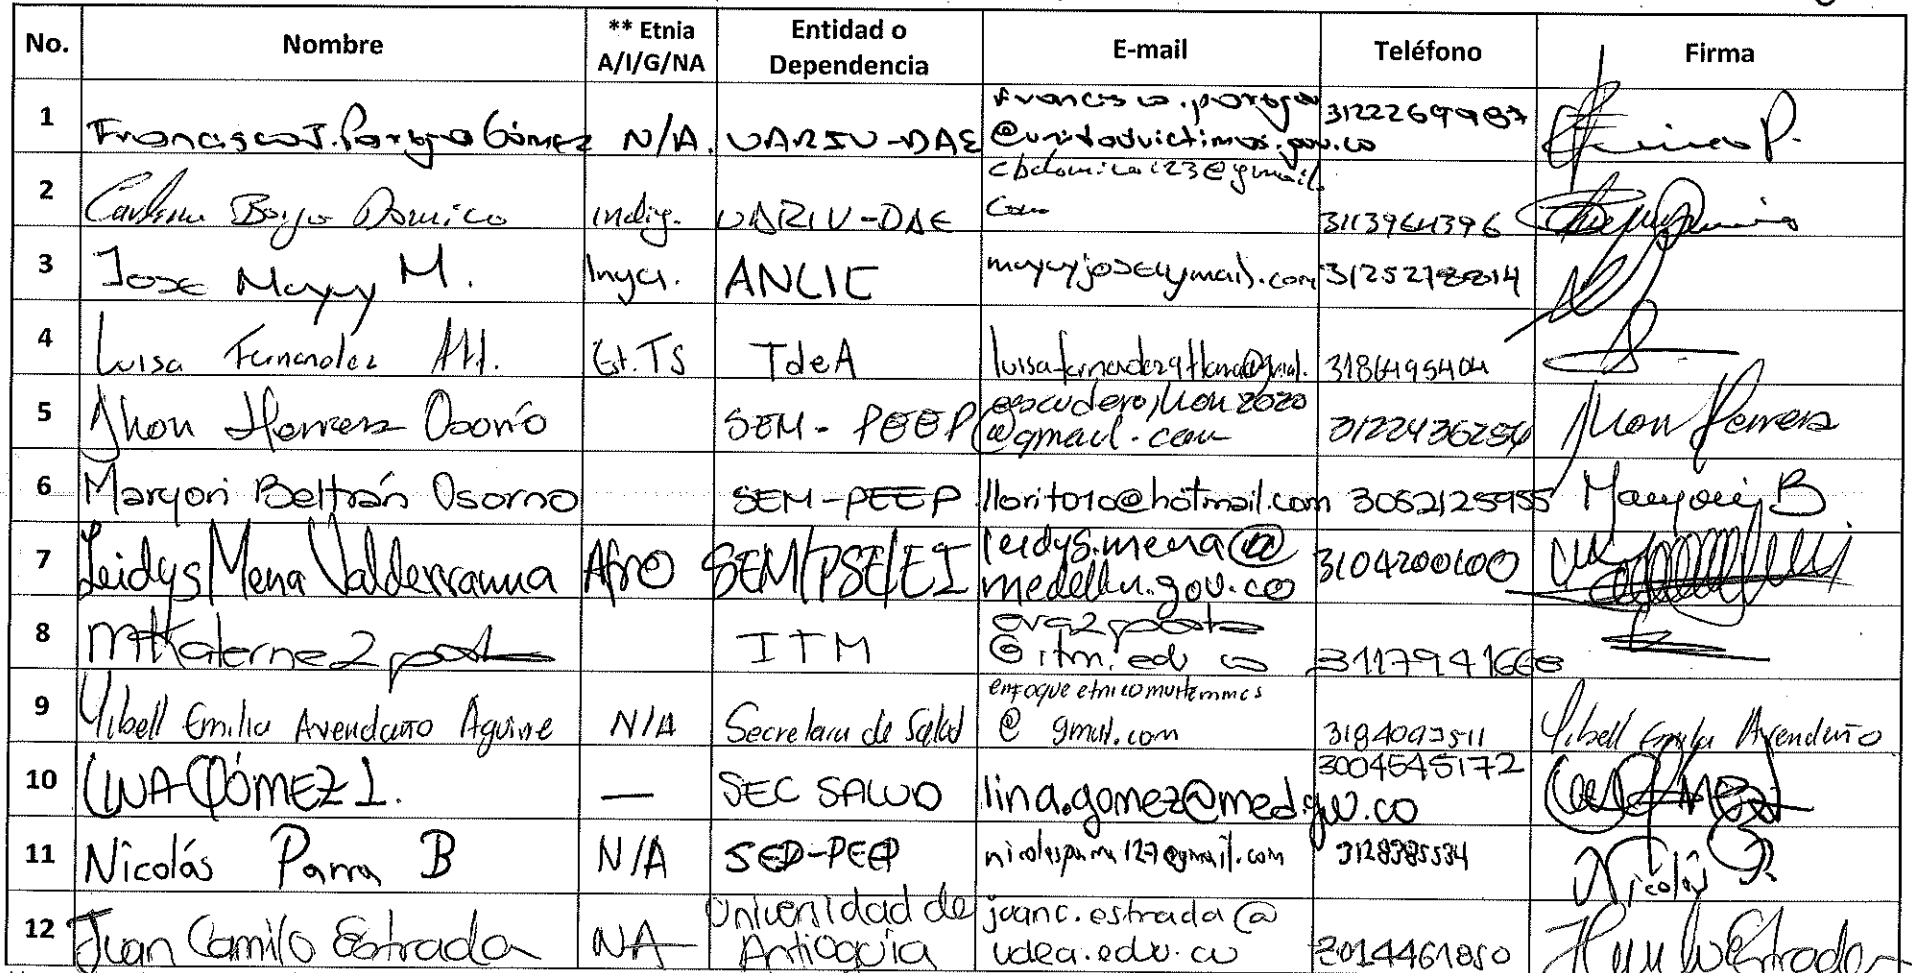 No. Nombre ** Etnia A/I/G/NA Entidad o Dependencia E-mail Teléfono Firma
1 Francisco J. Gómez N/A. UARIV-DAE @unidadvictimas.gov.co 3122269987
2 Domico indig. UARIV-DAE cbdomico123@gmail.com 3113964396
3 Jose M. 3125278814
4 Luisa Fernandez Att. Est. TS TdeA 3186495404
5 Jhon Herrera Osorio SEM - PEEP escuderojhon2020@gmail.com 3122436254 Jhon Herrera
6 Maryori Beltrán Osorno SEM-PEEP llorito10@hotmail.com 3052125955 B
7 Leidys Mena Valderrama Afro SEM/PSE/EI leidys.mena@medellin.gov.co 3104200600
8 ITM @itm.edu.co
9 Yibell Emilia Avendaño Aguirre N/A Secretaria de Salud @gmail.com 3184093511 Yibell Emilia Avendaño
10 LINA GÓMEZ L. — SEC SALUD lina.gomez@med.gov.co 3004545172
11 Nicolás Parra B N/A SED-PEEP nicolasparra127@gmail.com 3128385534 Nicolás P.
12 Juan Camilo Estrada NA Universidad de Antioquia juanc.estrada@udea.edu.co 3014461850 Estrada